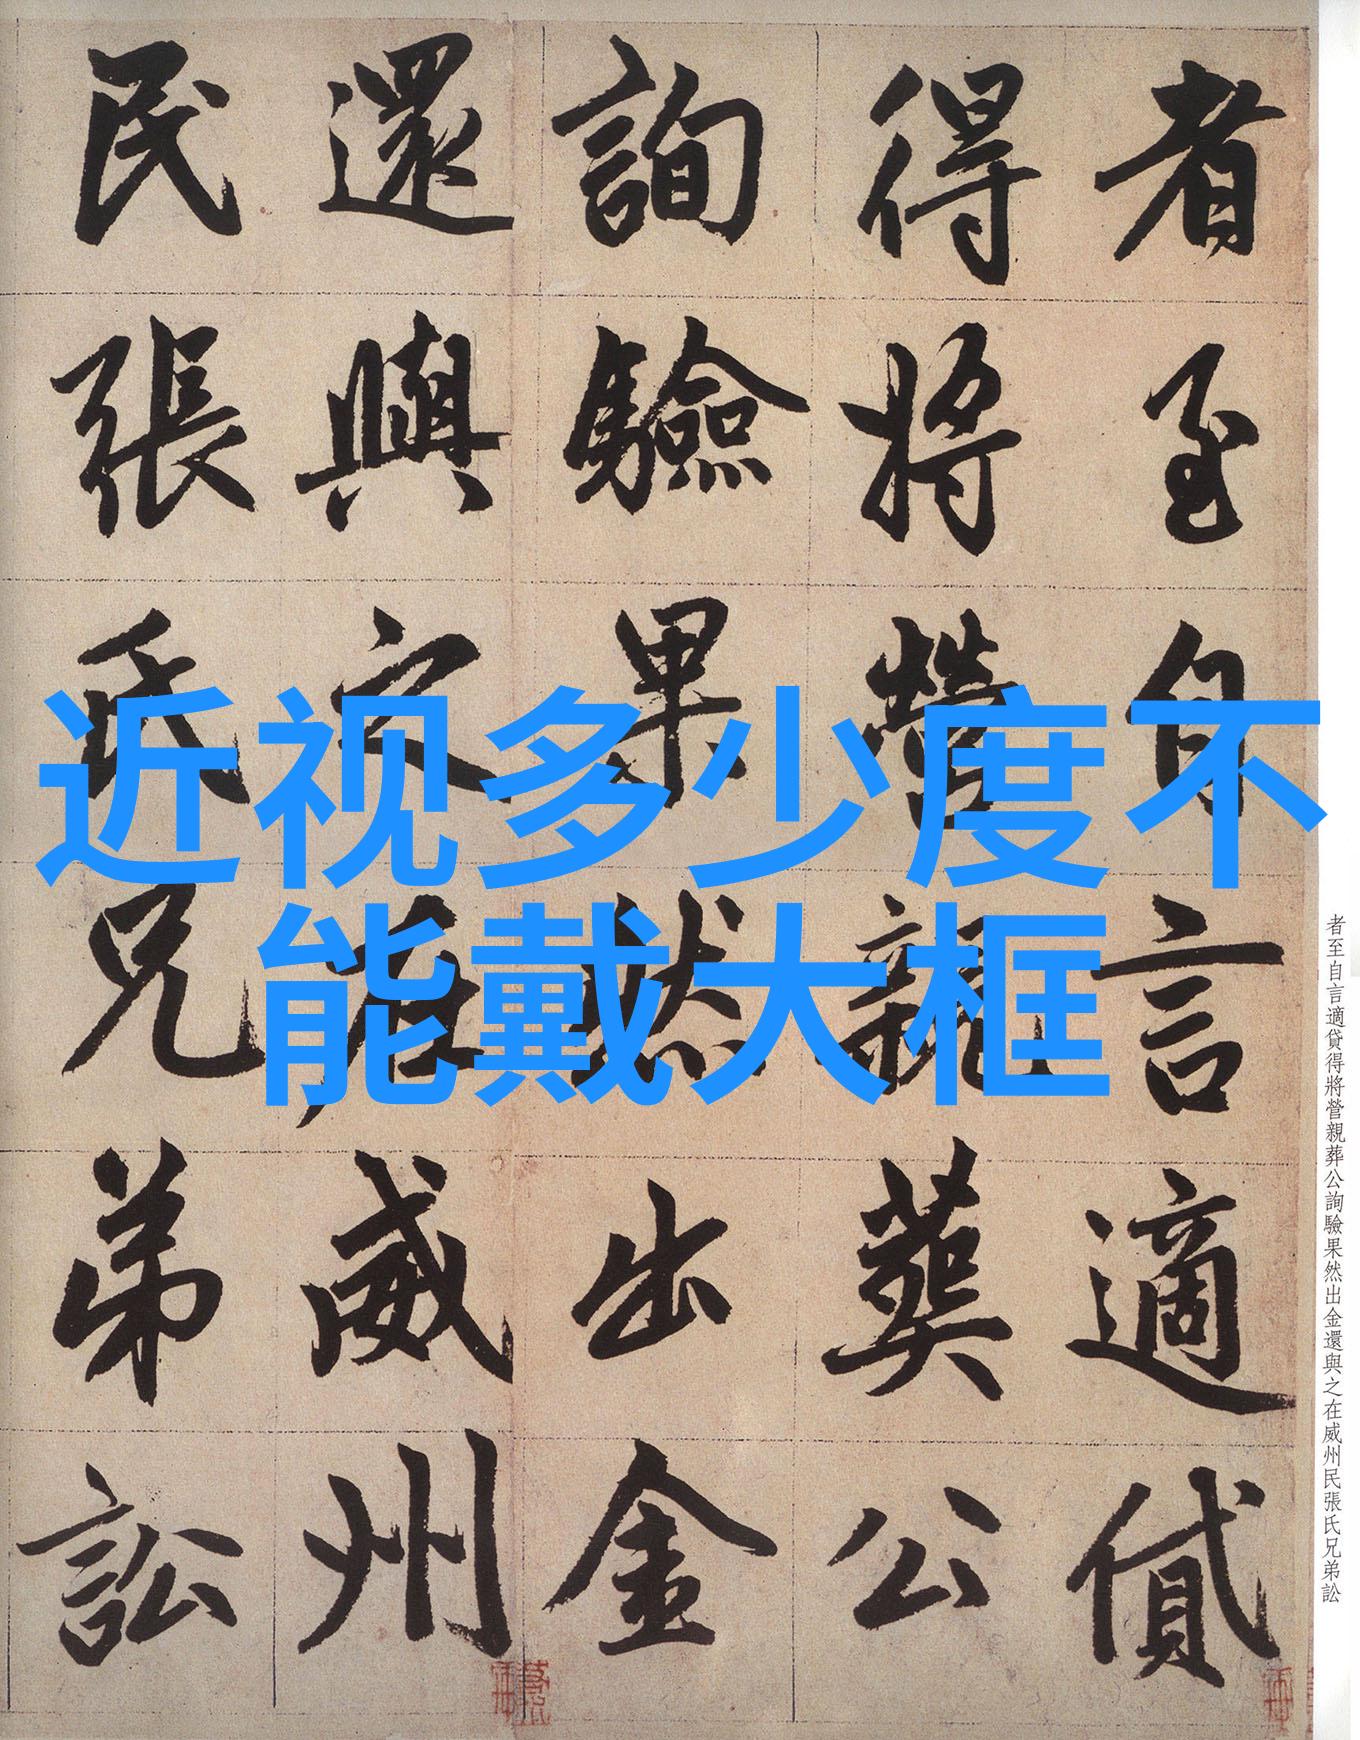 近视多少度不
能戴大框
者至自言適貸
得將營親葬公
詢驗果然出金
還與之在威州
民張氏兄弟訟
者至自言適貸得將營親葬公詢驗果然出金還與之在威州民張氏兄弟訟